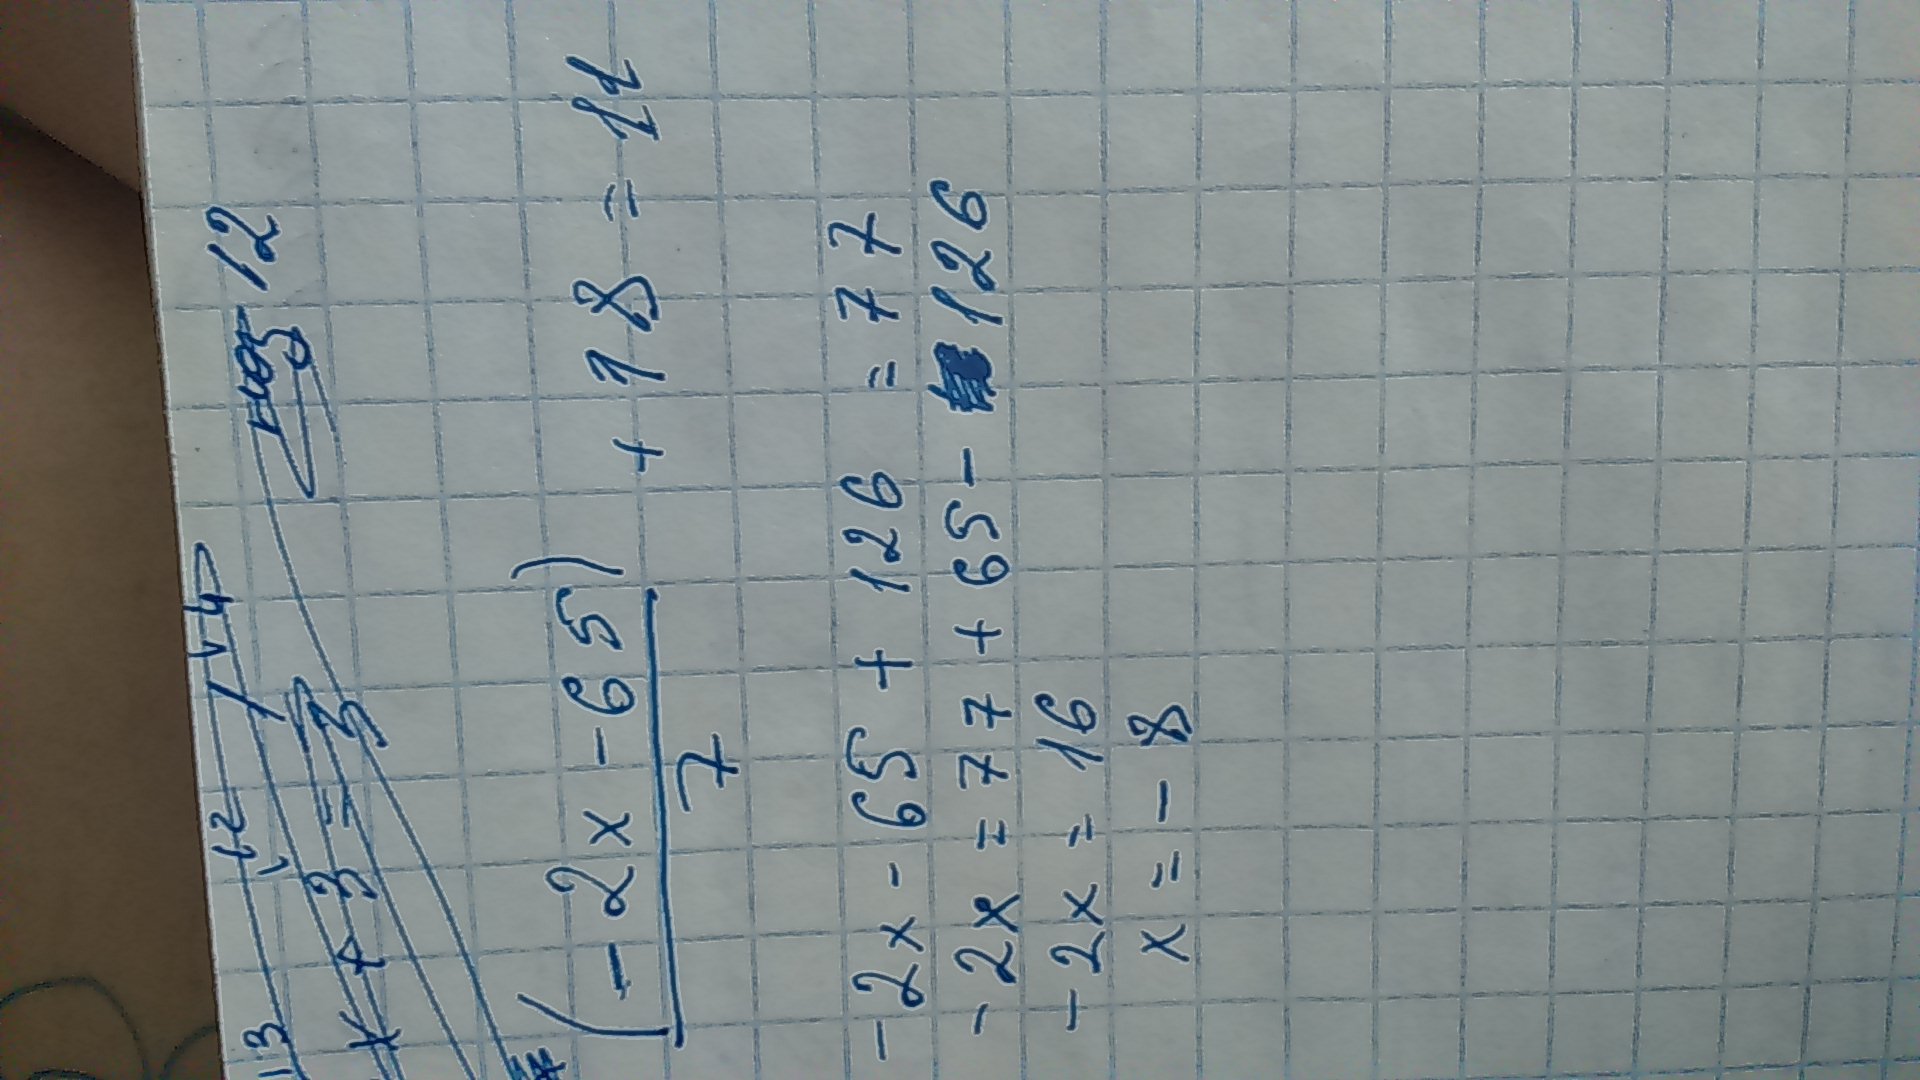 12
(-2x - 65) + 18 = 11
7
-2x - 65 + 126 = 77
-2x = 77 + 65 - 126
-2x = 16
x = - 8